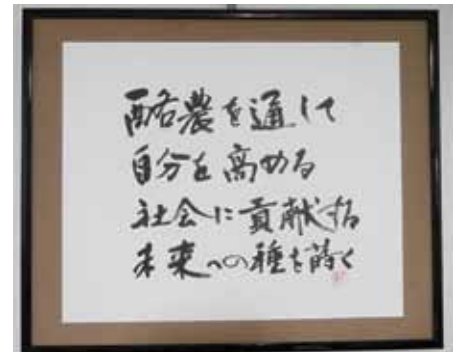 酪農を通して
自分を高める
社会に貢献する
未来への種を蒔く